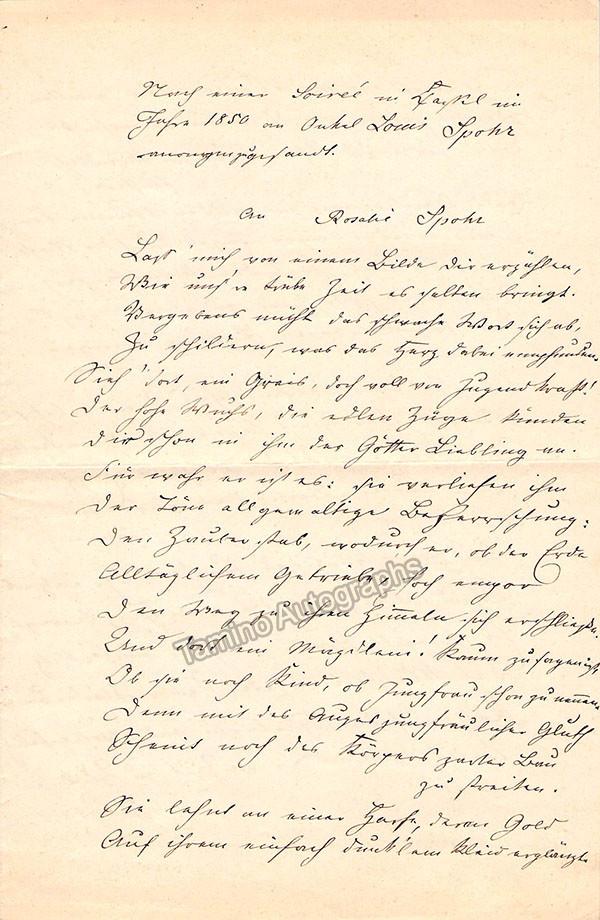 Nach einer Soireé in Cassel im
Jahre 1850 an Onkel Louis Spohr
anonym zugesandt.
An Rosalie Spohr
Lass' mich von einem Bilde Dir erzählen,
Wie uns're trübe Zeit es selten bringt.
Vergebens müht das schwache Wort sich ab,
Zu schildern, was das Herz dabei empfunden.
Sieh' dort, ein Greis, doch voll von Jugendkraft!
Der hohe Wuchs, die edlen Züge künden
Dir schon in ihm der Götter Liebling an.
Fürwahr er ist es: sie verliehen ihm
Der Töne allgewaltige Beherrschung:
Den Zauberstab, wodurch er, ob der Erde
Alltäglichem Getriebe, hoch empor
Den Weg zu ihren Himmeln sich erschließt.
Und dort ein Mägdlein! Kaum zu sagen ist's,
Ob sie noch Kind, ob Jungfrau schon zu nennen,
Denn mit des Auges jungfräulicher Gluth
Scheint noch des Körpers zarter Bau
zu streiten.
Sie lehnt an einer Harfe, deren Gold
Auf ihrem einfach dunklem Kleid erglänzt
Tamino Autographs